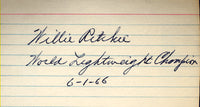 Willie Ritchie
World Lightweight Champion
6-1-66